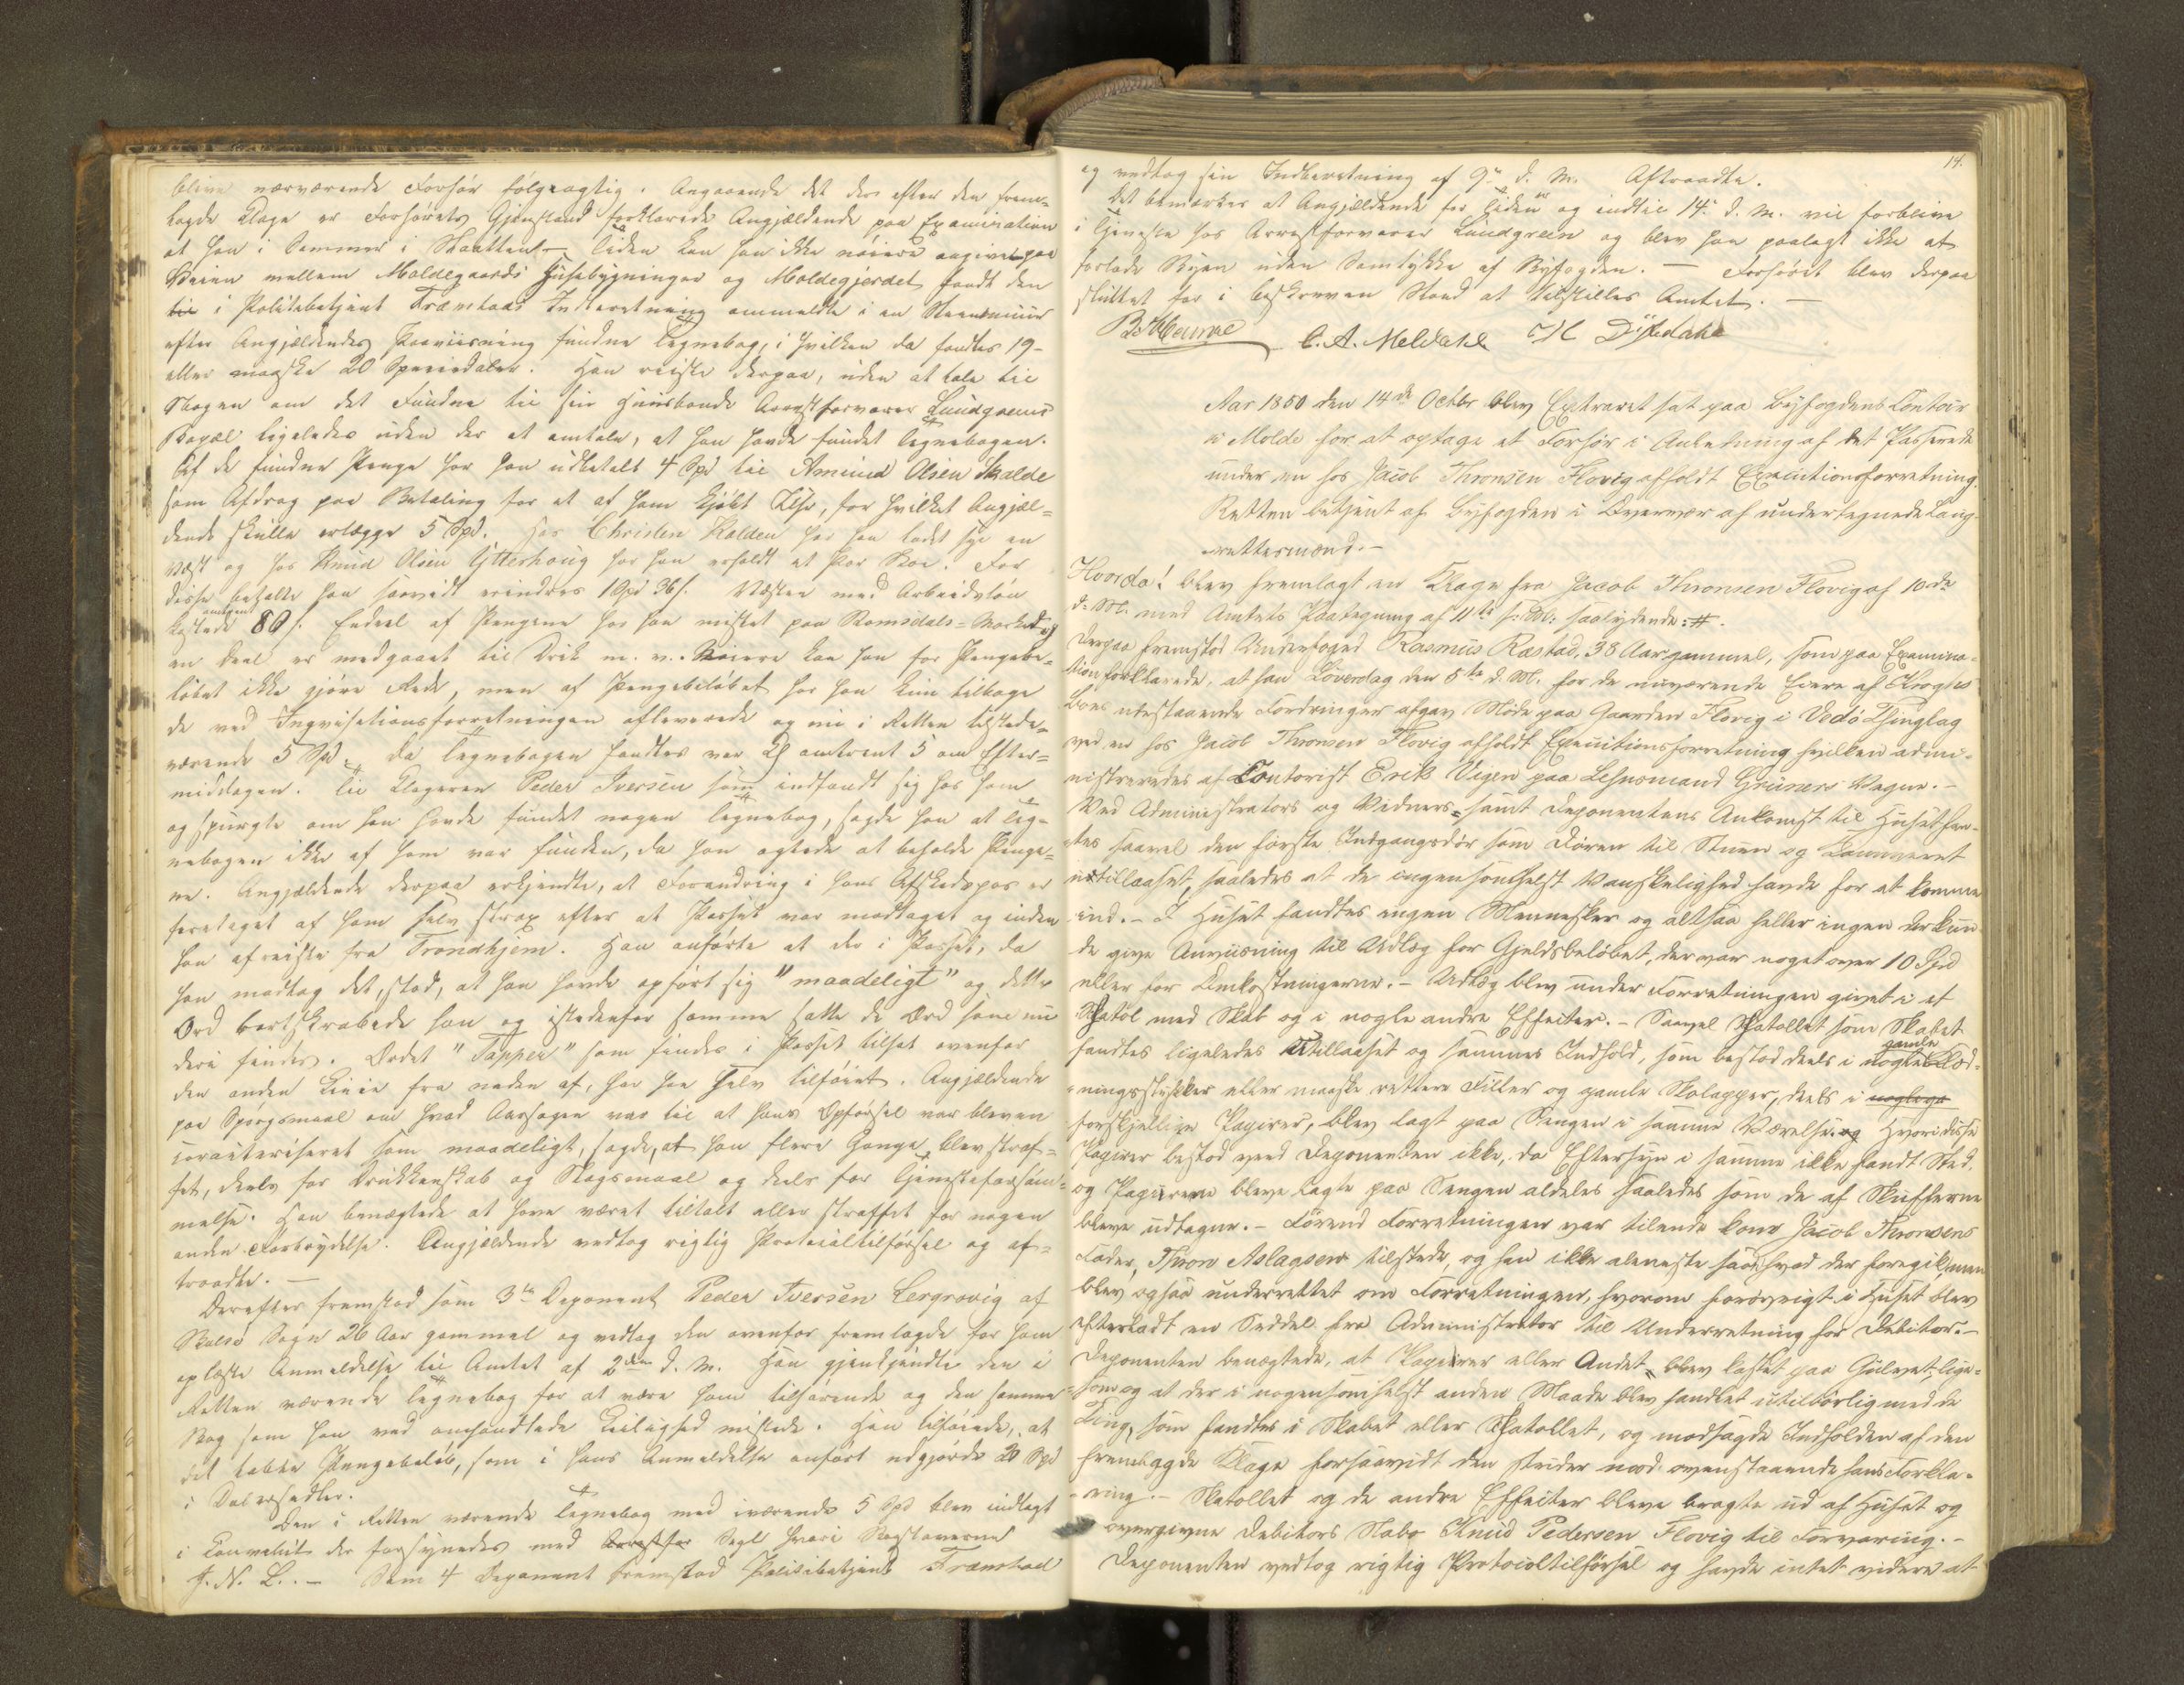 blive nærværende Forhør følgeagtig. Angaaende det der efter den frem-
lagde Klage er Forhørets Gjenstand forklarede Angjældende paa Examination
at han i Sommer i Slaatten – Tiden kan han ikke nøiere angive – paa
Veien mellem Moldegaards Huusebygninger og Moldegjerdet fandt den
til i Politibetjent Træmstads Indberetning ommeldte i en Steenmuur
efter Angjældendes Paaviisning fundne Tegnebog, i hvilken da fandtes 19-
eller maaske 20 Speciedaler. Han reiste derpaa, uden at tale til
Nogen om det Fundne til sin Huusbonde Arrestforvarer Lundgreens
Bopæl ligeledes uden der at omtale, at han havde fundet Tegnebogen.
Af de fundne Penge har han udbetalt 4 Spd til Amund Olsen Skalde
som Afdrag paa Betaling for et af ham kjøbt Uhr, for hvilket Angjæl-
dende skulle erlægge 5 Spd. Hos Christen Kolden har han ladet sye en
Vest og hos Knud Olsen Ytterhoug har han erholdt et Par Skoe. For
disse betalte han saavidt erindres 1 Spd 36 s. Vesten med Arbeidsløn
kostede omtrent 80 s. Endeel af Pengene har han mistet paa Romsdals-Marked og
en Deel er medgaaet til Drik m. v. Nøiere kan han for Pengebe-
løbet ikke gjøre Rede, men af Pengebeløbet har han kun tilbage
de ved Inqvisitionsforretningen afleverede og nu i Retten tilstede-
værende 5 Spd. Da Tegnebogen fandtes var Kl omtrent 5 om Efter-
middagen. Til Klageren Peder Iversen som indfandt sig hos ham
og spurgte om han havde fundet nogen Tegnebog, sagde han at Teg-
nebogen ikke af ham var funden, da han agtede at beholde Penge-
ne. Angjældende derpaa erkjendte, at Forandring i hans Afskedspas er
foretaget af ham selv strax efter at Passet var modtaget og inden
han afreiste fra Trondhjem. Han anførte at der i Passet, da
han modtog det, stod, at han havde opført sig "maadeligt" og dette
Ord bortskrabede han og istedenfor samme satte de Ord som nu
deri findes. Ordet "Tapper" som findes i Passet tilsat ovenfor
den anden Linie fra neden af, har han selv tilføiet. Angjældende
paa Spørgsmaal om hvad Aarsagen var til at hans Opførsel var bleven
caracteriseret som maadeligt, sagde, at han flere Gange blev straf-
fet, deels for Drikkenskab og Slagsmaal og deels for Tjenesteforsøm-
melse. Han benægtede at have været tiltalt eller straffet for nogen
anden Forbrydelse. Angjældende vedtog rigtig Protocoltilførsel og af-
traadte. –
Derefter fremstod som 3die Deponent Peder Iversen Lergrovig af
Bolsø Sogn 26 Aar gammel og vedtog den ovenfor fremlagde for ham
oplæste Anmeldelse til Amtet af 2den d. M. Han gjenkjendte den i
Retten værende Tegnebog for at være ham tilhørende og den samme
Bog som han ved omhandlede Leilighed mistede. Han tilføiede, at
det tabte Pengebeløb, som i hans Anmeldelse anført udgjorde 20 Spd
i Dalersedler.
Den i Retten værende Tegnebog med iværende 5 Spd blev indlagt
i Convolut der forsynedes med Segl hvori Bogstaverne
J. N. L. – Som 4 Deponent fremstod Politibetjent Træmstad
14.
og vedtog sin Indberetning af 9de d. M. Aftraadte.
Det bemærkes at Angjældende for Tiden er og indtil 14de d. M. vil forblive
i Tjeneste hos Arrestforvarer Lundgreen og blev han paalagt ikke at
forlade Byen uden Samtykke af Byfogden. – Forhøret blev derpaa
sluttet for i beskreven Stand at tilstilles Amtet. –
C. A. Meldahl
Aar 1850 den 14de Octbr blev Extraret sat paa Byfogdens Contoir
i Molde for at optage et Forhør i Anledning af det Passerede
under en hos Jacob Thronsen Flovig afholdt Executionsforretning.
Retten betjent af Byfogden i Overvær af undertegnede Laug-
rettesmænd. –
Hvorda! blev fremlagt en Klage fra Jacob Thronsen Flovig af 10de
d: M: med Amtets Paategning af 11te s: M: saalydende: #.
Derpaa fremstod Underfoged Rasmus Rastad, 38 Aar gammel, som paa Examina-
tion forklarede, at han Løverdag den 5te d. M. for de nuværende Eiere af Kroghs
Boes udestaaende Fordringer afgav Møde paa Gaarden Flovig i Vedø Thinglag
ved en hos Jacob Thronsen Flovig afholdt Executionsforretning hvilken admi-
nistreredes af Contorist Erik Vigen paa Lehnsmand Grüners Vegne. –
Ved Administrators og Vidners- samt Deponentens Ankomst til Huset fan-
tes saavel den første Indgangsdør som Døren til Stuen og Kammeret
utillaaset, saaledes at de ingensomhelst Vanskelighed havde for at komme
ind. – I Huset fandtes ingen Mennesker og altsaa heller ingen der kun-
de give Anviisning til Udlæg for Gjeldsbeløbet, der var noget over 10 Spd
eller for Omkostningerne. – Udlæg blev under Forretningen givet i et
Chatol med Skab og i nogle andre Effecter. – Saavel Chatollet som Skabet
fandtes ligeledes utillaaset og sammes Indhold, som bestod deels i nogle gamle Klæd-
ningsstykker eller maaske rettere Filler og gamle Skolapper, deels i
forskjellige Papirer, blev lagt paa Sengen i samme Værelse. Hvori disse
Papirer bestod veed Deponenten ikke, da Eftersyn i samme ikke fandt Sted,
og Papirerne bleve lagte paa Sengen aldeles saaledes som de af Skufferne
bleve udtagne. – Førend Forretningen var tilende kom Jacob Thronsens
Fader, Thron Aslagsen tilstede, og han ikke aleneste saae hvad der foregik, men
blev ogsaa underrettet om Forretningen, hvorom forøvrigt i Huset blev
efterladt en Seddel fra Administrator til Underretning for Debitor. –
Deponenten benægtede, at Papirer eller Andet blev kastet paa Gulvet, lige-
som og at der i nogensomhelst anden Maade blev handlet utilbørlig med de
Ting, som fandtes i Skabet eller Chatollet, og modsagde Indholden af den
fremlagde Klage forsaavidt den strider mod ovenstaaende hans Forkla-
ring. – Chatollet og de andre Effecter bleve bragte ud af Huset og
overgivne Debitors Nabo Knud Pedersen Flovig til Forvaring. –
Deponenten vedtog rigtig Protocoltilførsel og havde intet videre at